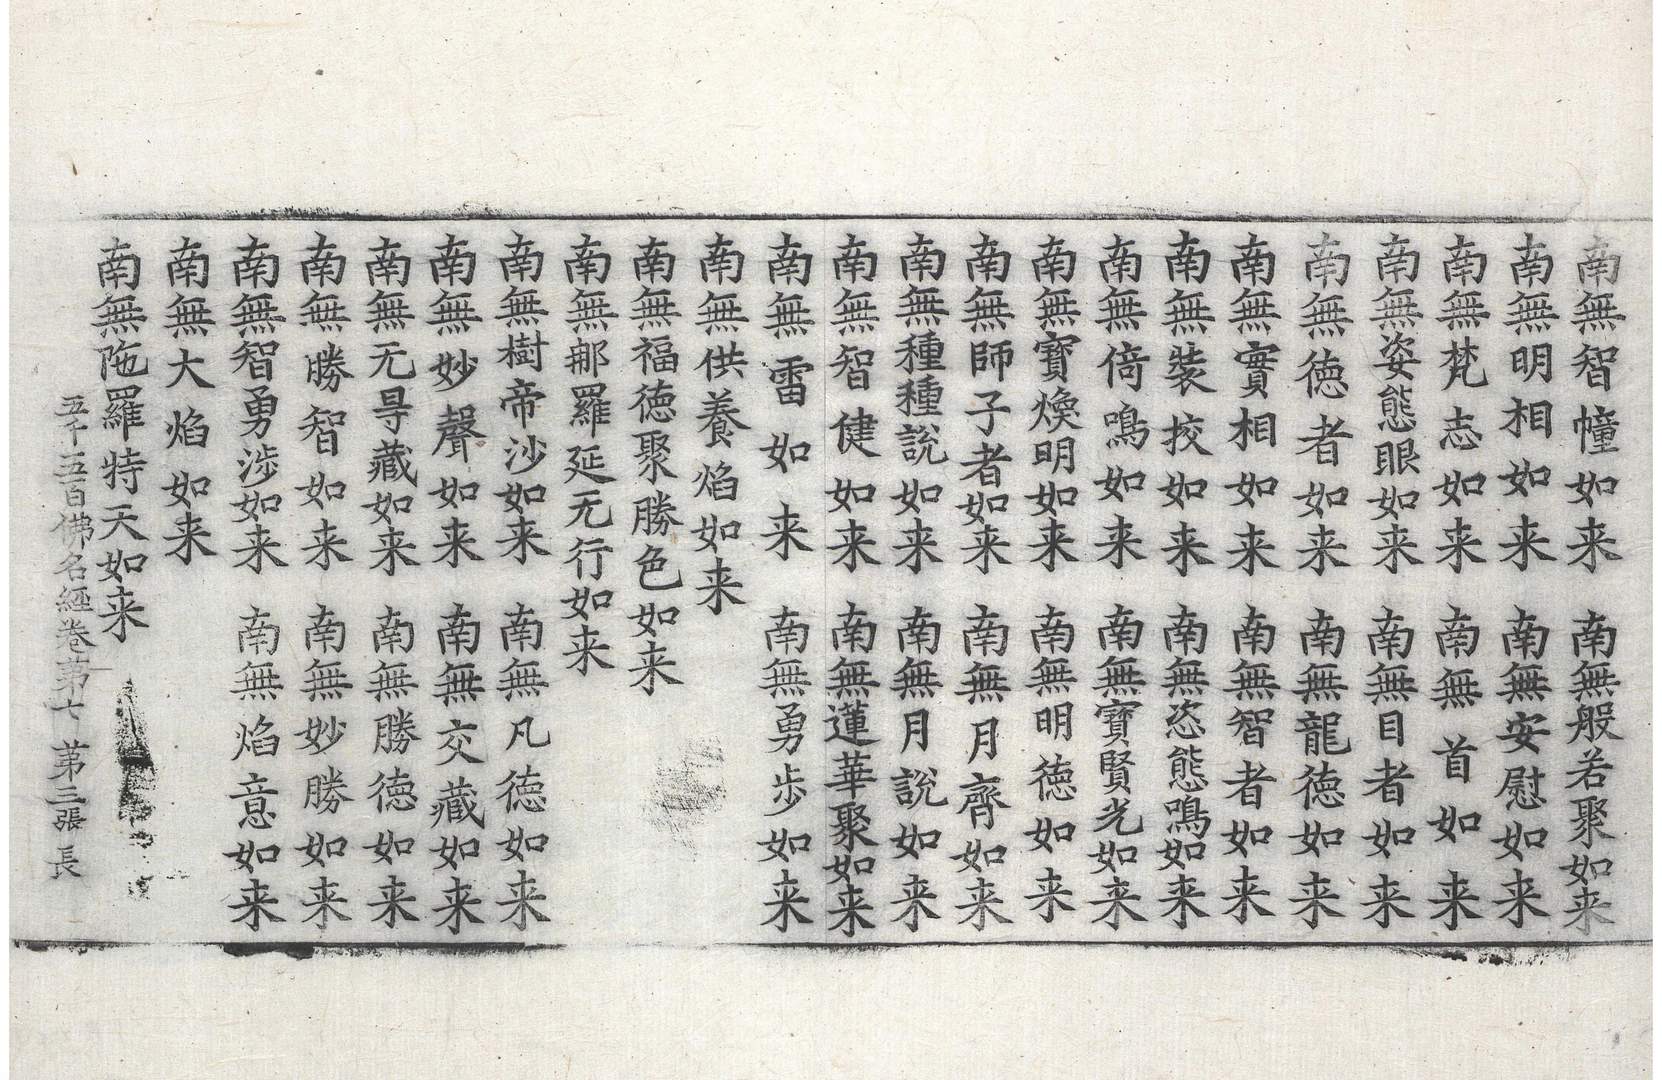 南無智幢如来 南無般若聚如来
南無明相如来 南無安慰如来
南無梵志如来 南無首如来
南無姿態眼如来 南無目者如来
南無徳者如来 南無龍徳如来
南無實相如来 南無智者如来
南無裝挍如来 南無恣態鳴如来
南無倚鳴如来 南無寶賢光如来
南無寶煥明如来 南無明徳如来
南無師子者如来 南無月齊如来
南無種種說如来 南無月說如来
南無智健如来 南無蓮華聚如来
南無雷如来 南無勇步如来
南無供養焰如来
南無福徳聚勝色如来
南無那羅延无行如来
南無樹帝沙如来 南無凡徳如来
南無妙聲如来 南無交藏如来
南無无㝵藏如来 南無勝徳如来
南無勝智如来 南無妙勝如来
南無智勇涉如来 南無焰意如来
南無大焰如来
南無陁羅特天如来
五千五百佛名經卷第六 苐三張 長